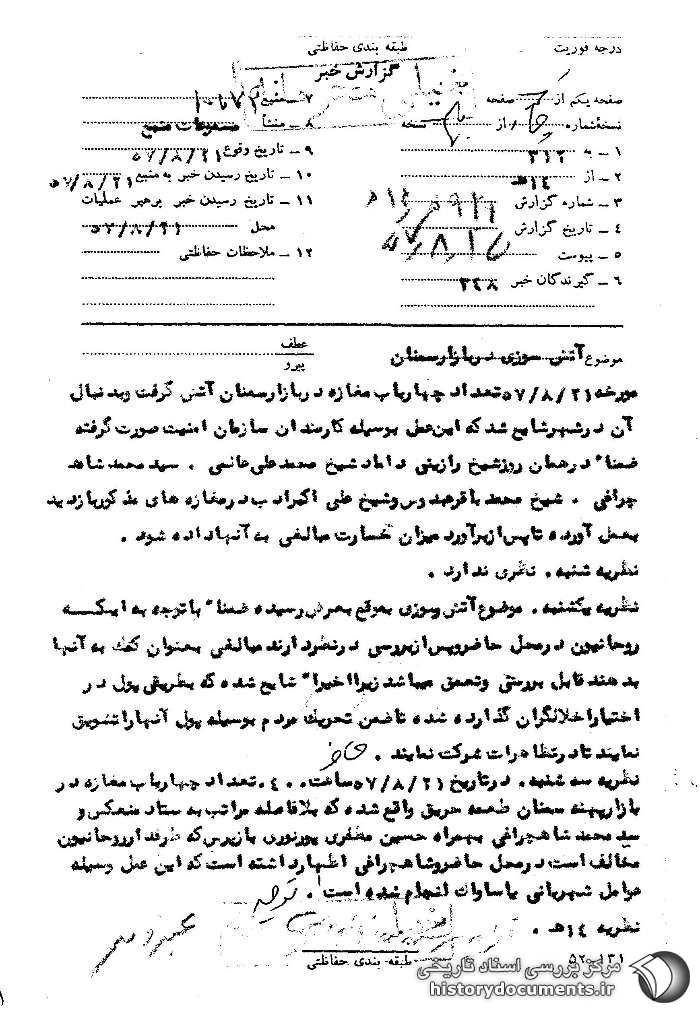 درجه فوریت
طبقه بندی حفاظتی
گزارش خبر
صفحه یکم از صفحه
نسخهٔ شماره از نسخه
۱ ـ به ۳۱۲
۲ ـ از ۱۴هـ
۳ ـ شماره گزارش
۴ ـ تاریخ گزارش
۵ ـ پیوست
۶ ـ گیرندگان خبر ۳۴۸
۷ ـ منبع
۸ ـ منشأ مسموعات منبع
۹ ـ تاریخ وقوع ۵۷/۸/۲۱
۱۰ ـ تاریخ رسیدن خبر به منبع ۵۷/۸/۲۱
۱۱ ـ تاریخ رسیدن خبر برهبر عملیات
محل ۵۷/۸/۲۱
۱۲ ـ ملاحظات حفاظتی
موضوع آتش سوزی در بازار سمنان
عطف
پیرو
مورخه ۵۷/۸/۲۱ تعداد چهارباب مغازه در بازار سمنان آتش گرفت و بدنبال
آن در شهر شایع شد که این عمل بوسیله کارمندان سازمان امنیت صورت گرفته
ضمنا" در همان روز شیخ رازینی داماد شیخ محمد علی عالمی . سید محمد شاه
چراغی . شیخ محمد باقر و شیخ علی اکبر ادب در مغازه های مذکور بازدید
بعمل آورده تا پس از برآورد میزان خسارت مبالغی به آنها داده شود .
نظریه شنبه . نظری ندارد .
نظریه یکشنبه . موضوع آتش سوزی بموقع بعرض رسیده ضمنا" با توجه به اینکه
روحانیون در محل حاضر و پس از بررسی در نظر دارند مبالغی بعنوان کمک به آنها
بدهند قابل بررسی و تعمق میباشد زیرا اخیرا" شایع شده که بطریقی پول در
اختیار اخلالگران گذارده شده تا ضمن تحریک مردم بوسیله پول آنها را تشویق
نمایند تا در تظاهرات شرکت نمایند .
نظریه سه شنبه . در تاریخ ۵۷/۸/۲۱ ساعت ۰۴۰۰ تعداد چهارباب مغازه در
بازار پهنه سمنان طعمه حریق واقع شده که بلافاصله مراتب به ستاد منعکس و
سید محمد شاهچراغی بهمراه حسین مظفری پورنوری بازپرس که طرفدار روحانیون
مخالف است در محل حاضر و شاهچراغی اظهار داشته است که این عمل وسیله
عوامل شهربانی یا ساواک انجام شده است .
نظریه ۱۴هـ .
طبقه بندی حفاظتی
مرکز بررسی اسناد تاریخی
historydocuments.ir